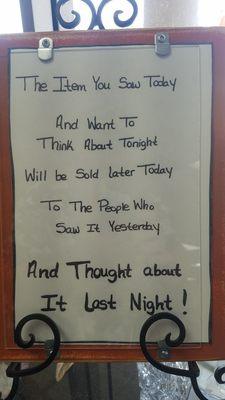 The Item You Saw Today
And Want To
Think About Tonight
Will be Sold Later Today
To The People Who
Saw It Yesterday
And Thought about
It Last Night!